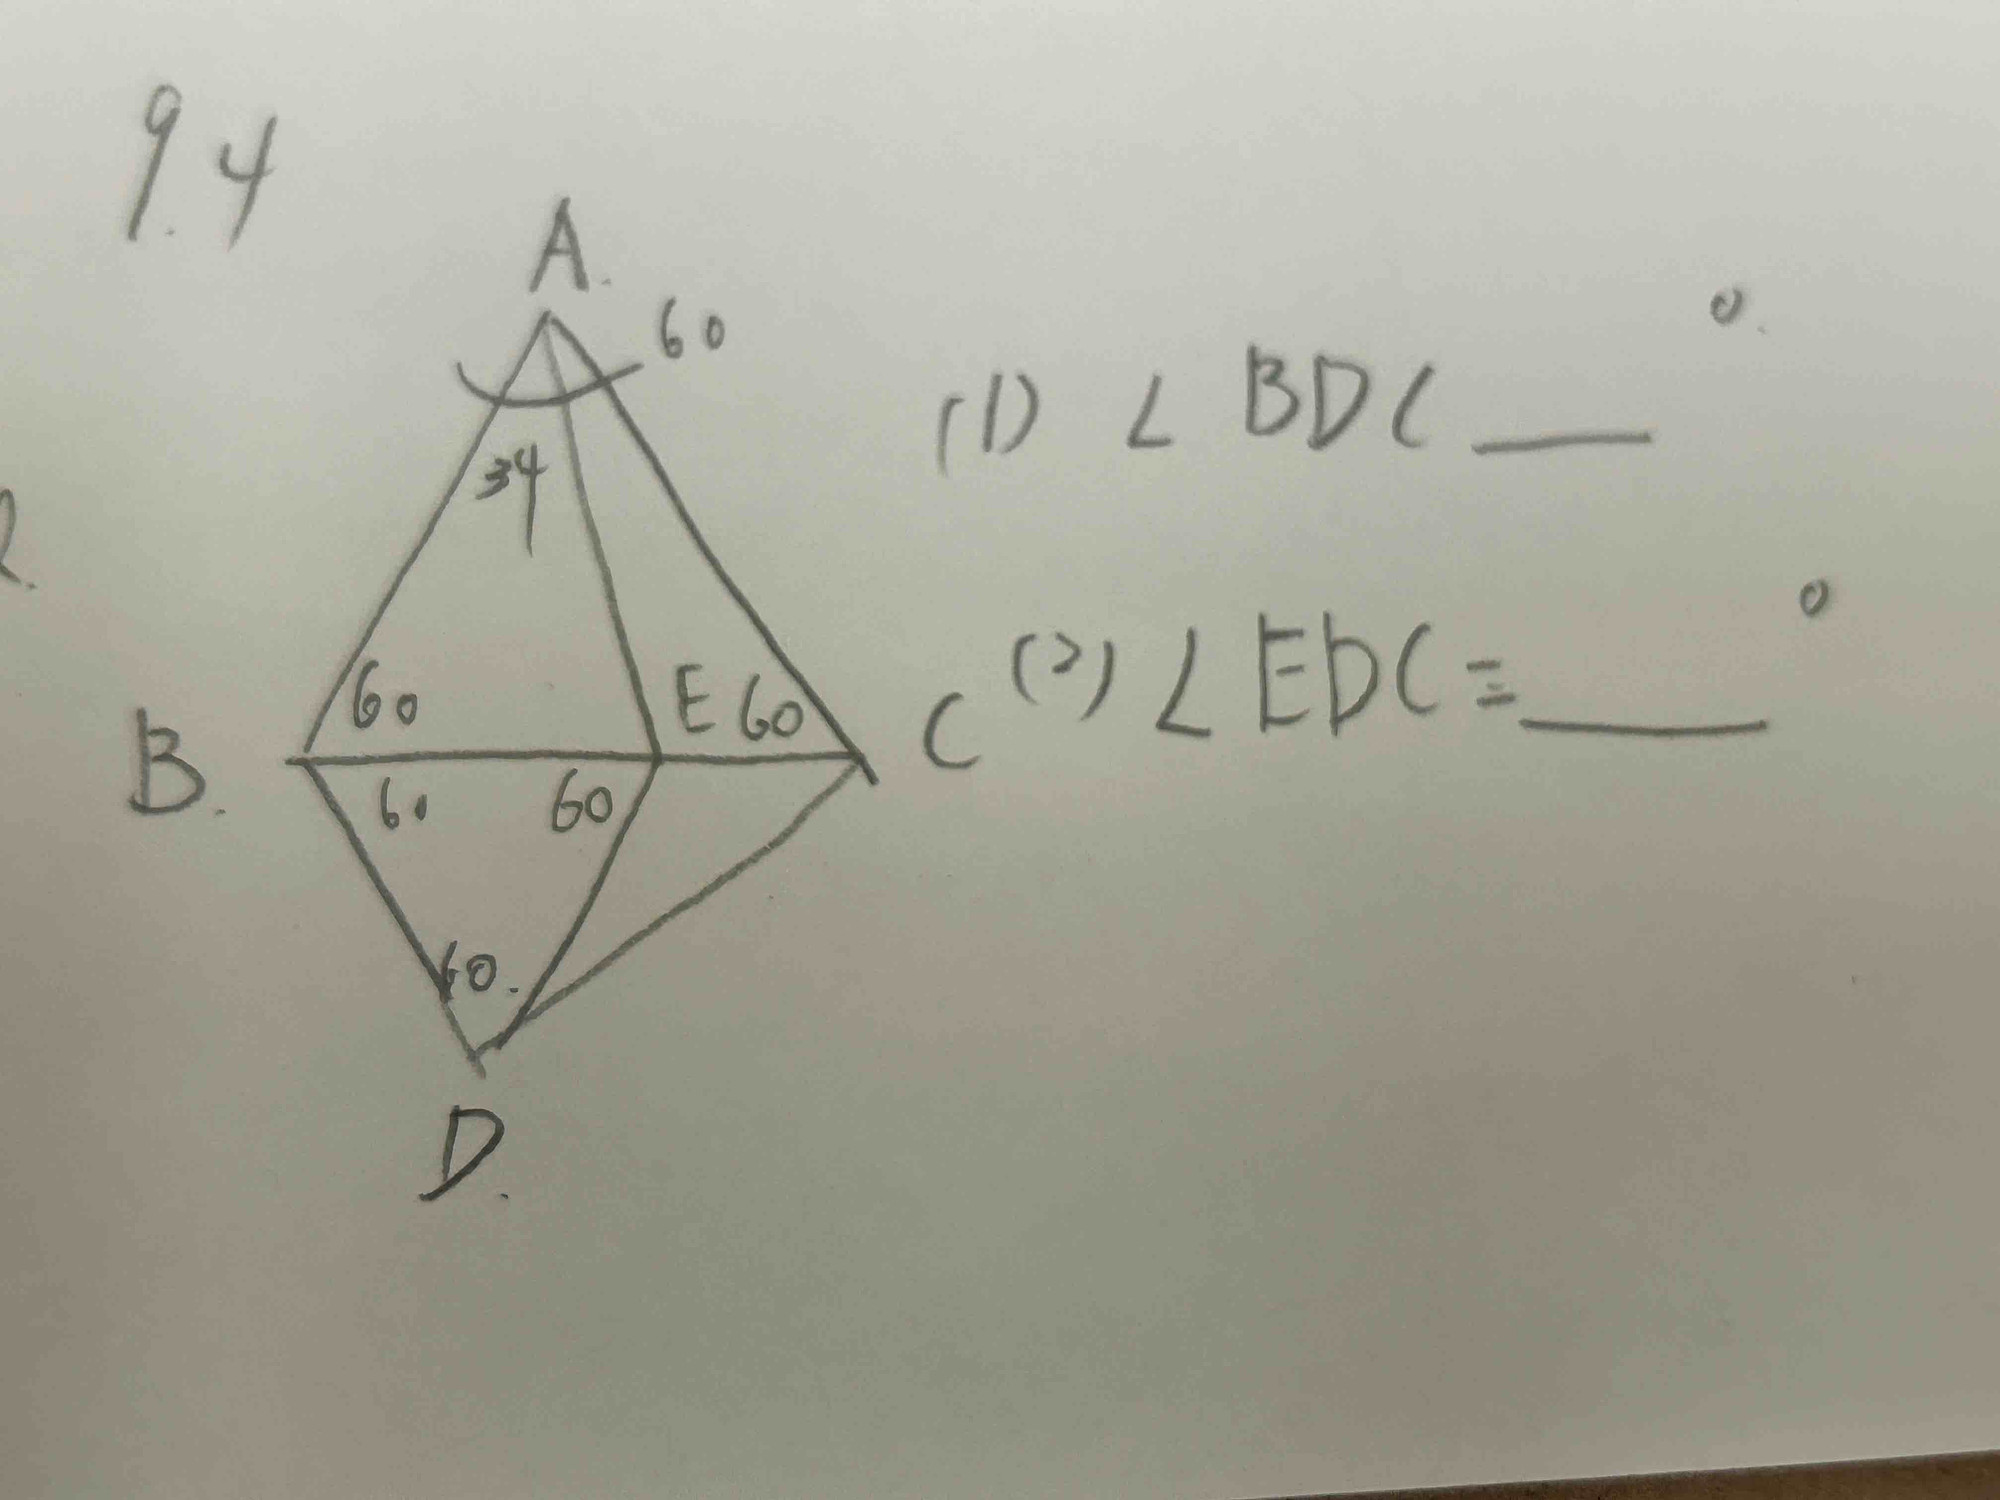 9.4
A.
60
(1) ∠ BDC ___ °
34
2.
(2) ∠ EDC = ___ °
60 E 60 C
B.
60 60
60.
D.